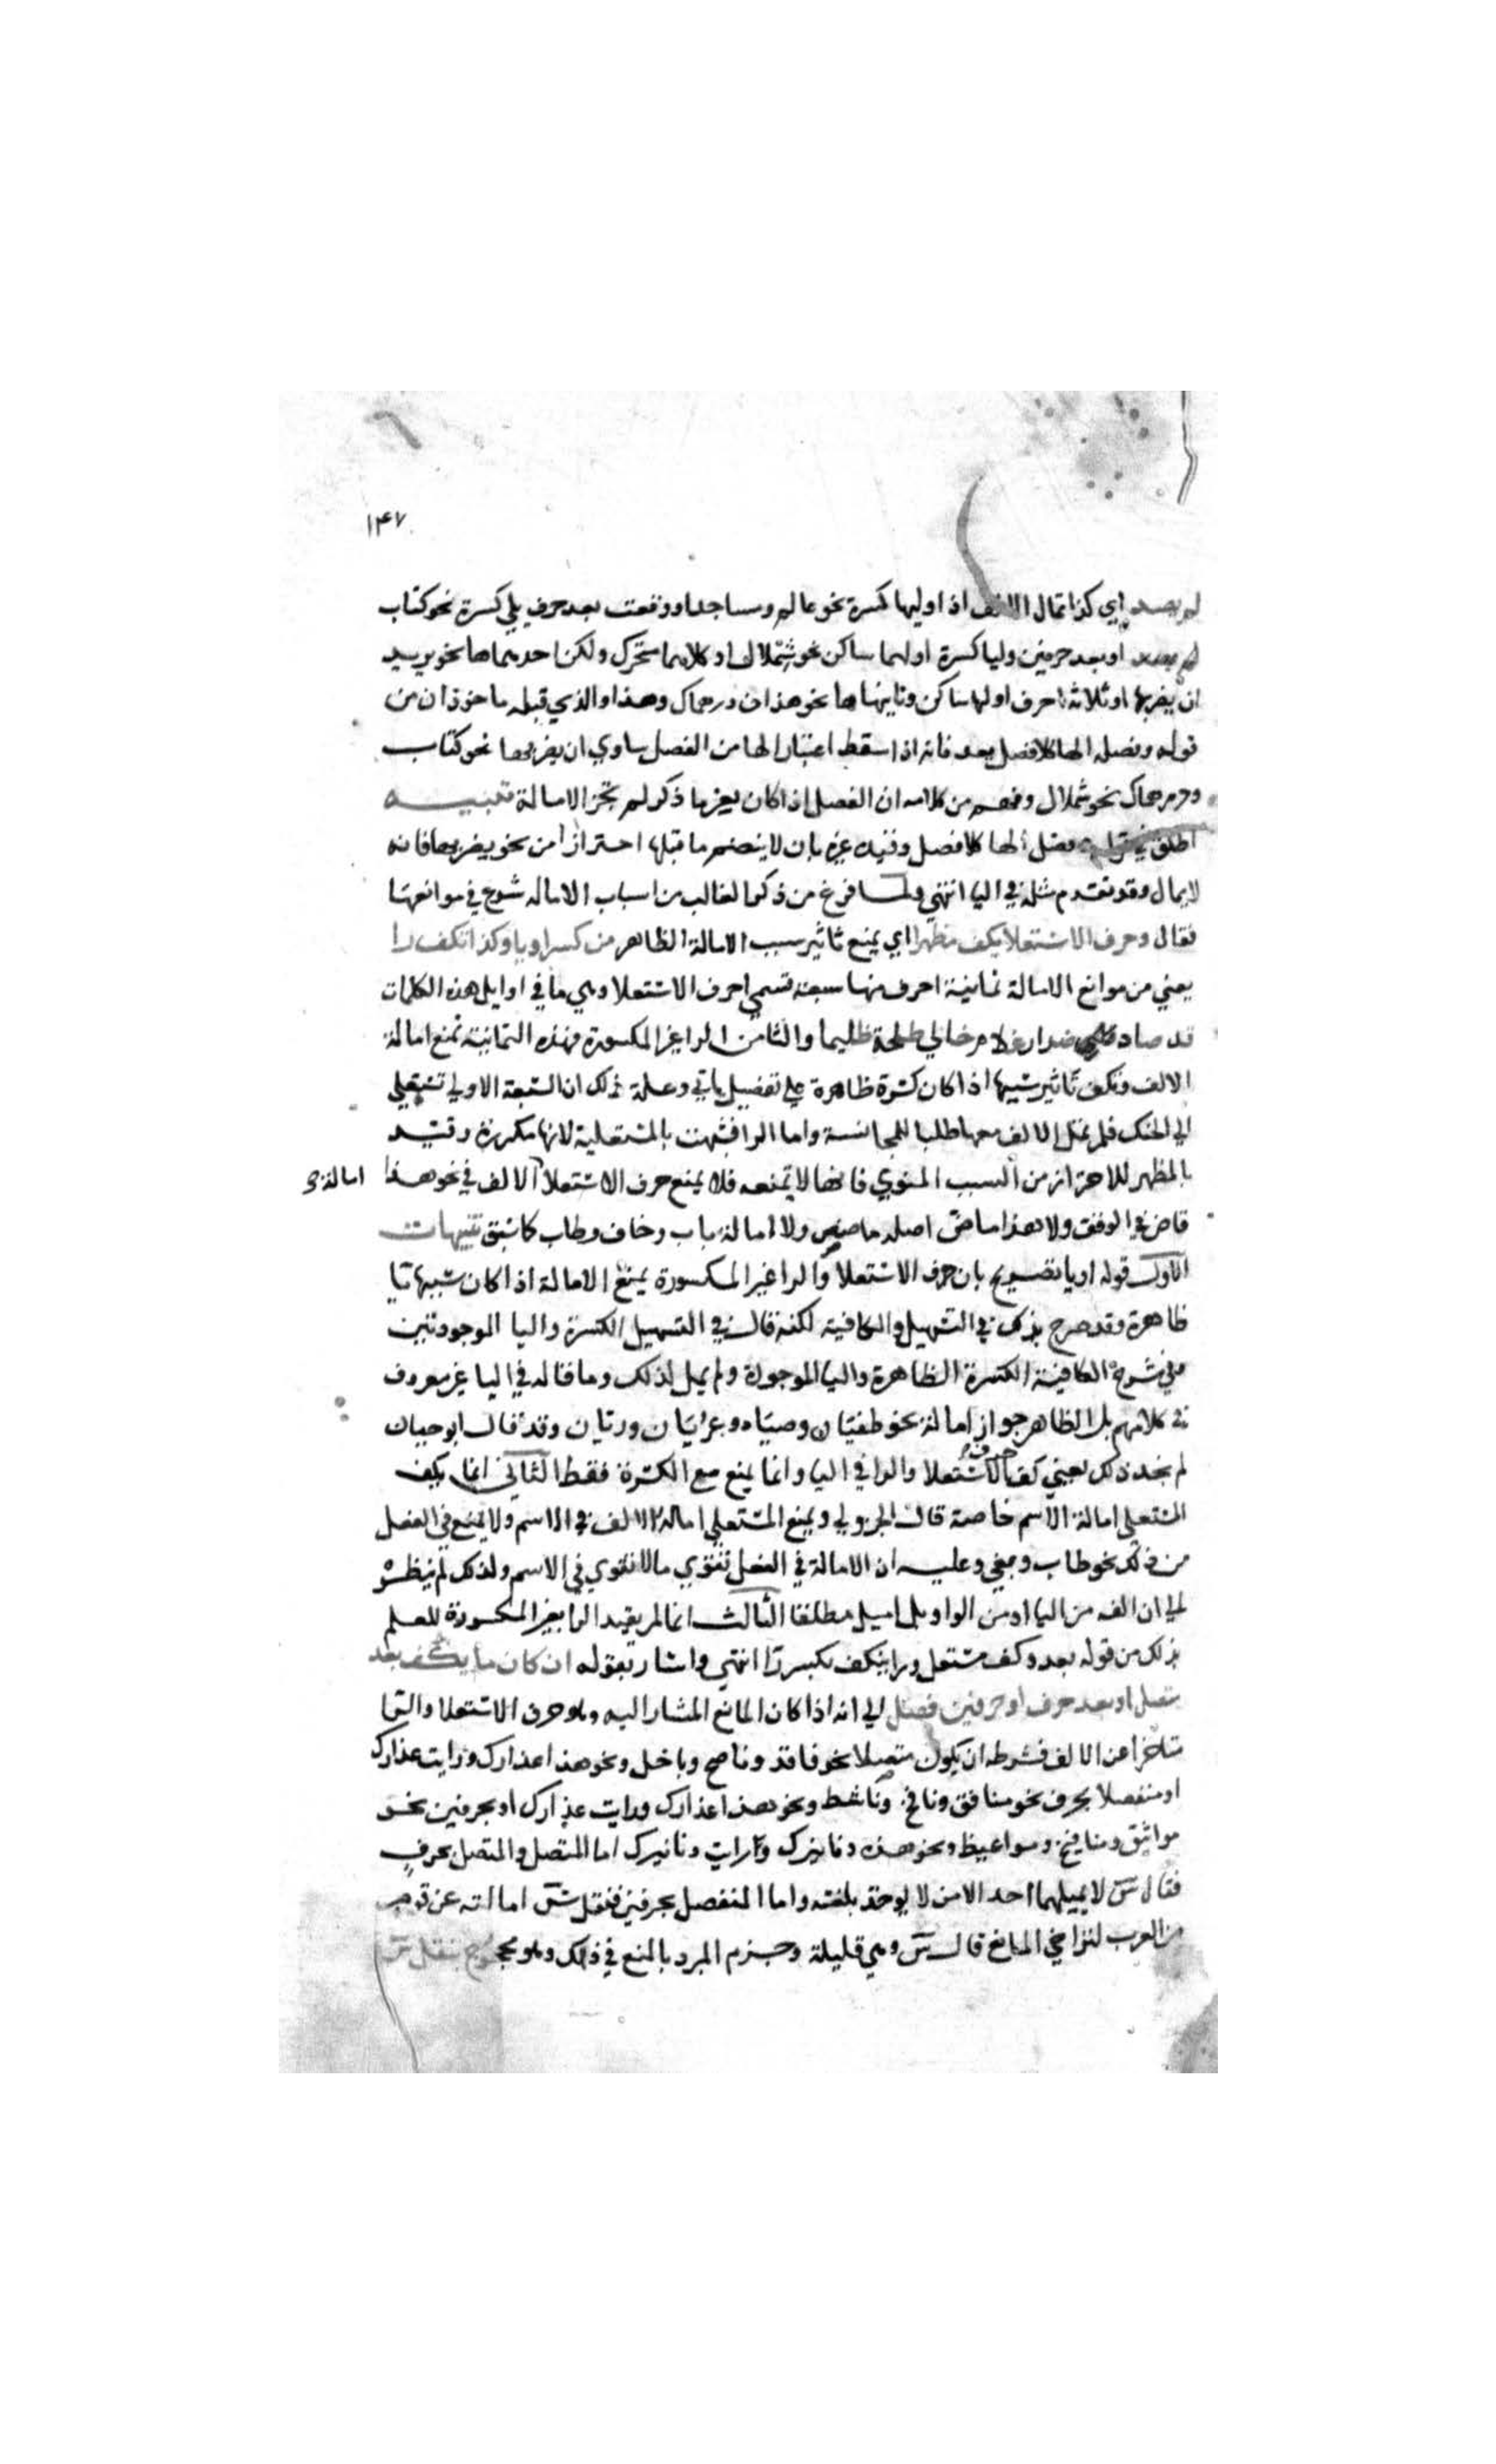 ١٤٧
لم يصد اي كذا تمال الالف اذا وليها كسرة نحو عالم ومساجد او وقعت بعد حرف يلي كسرة نحو كتاب
او بعد حرفين وليا كسرة اولهما ساكن نحو شملال او كلاهما متحرك ولكن احدهما ها نحو يريد
ان يضربها او ثلاثة احرف اولها ساكن وثانيها ها نحو هذان درهماك وهذا والذي قبله ماخوذان من
قوله وفصل الها كلا فصل يعد فانه اذا سقط اعتبار الها من الفصل ساوي ان يضربها نحو كتاب
ودرهماك نحو شملال وفهم من كلامه ان الفصل اذا كان بغير ما ذكر لم تجز الامالة تنبيه
اطلق في قوله وفصل الها كلا فصل وقيده غيره بان لا ينضم ما قبلها احترازا من نحو يضربها فانه
لا يمال وقد تقدم مثله في اليا انتهي ولما فرغ من ذكر الغالب من اسباب الامالة شرع في موانعها
فقال وحرف الاستعلا يكف مظهرا اي يمنع تاثير سبب الامالة الظاهر من كسر او يا وكذا تكف را
يعني من موانع الامالة ثمانية احرف منها سبعة تسمي احرف الاستعلا وهي ما في اوايل هذه الكلمات
قد صاد ضرار غلام خالي طلحة ظليما والثامن الرا غير المكسورة فهذه الثمانية تمنع امالة
الالف وتكف تاثير سببها اذا كان كسرة ظاهرة علي تفصيل ياتي وعلة ذلك ان السبعة الاولي تستعلي
الي الحنك فلم تمل الالف معها طلبا للمجانسة واما الرا فشبهت بالمستعلية لانها مكررة وقيد
بالمظهر للاحتراز من السبب المنوي فانها لا تمنعه فلا يمنع حرف الاستعلا الالف في نحو هذا
امالة
قاض في الوقف ولا هذا ماض اصله ماصص ولا امالة باب وخاف وطاب كما سبق تنبيهات
الاول قوله او يا تصريح بان حرف الاستعلا والرا غير المكسورة يمنع الامالة اذا كان سببها يا
ظاهرة وقد صرح بذلك في التسهيل والكافية لكنه قال في التسهيل الكسرة واليا الموجودتين
وفي شرح الكافية الكسرة الظاهرة واليا الموجودة ولم يمثل لذلك وما قاله في اليا غير معروف
في كلامهم بل الظاهر جواز امالة نحو طغيان وصياه وعريان وريان وقد قال ابو حيان
لم نجد ذلك يعني كف حرف الاستعلا والرا في اليا وانما يمنع مع الكسرة فقط الثاني انما يكف
المستعلي امالة الاسم خاصة قال الجزولي ويمنع المستعلي امالة الالف في الاسم ولا يمنع في الفعل
من ذلك نحو طاب وبغي وعليه ان الامالة في الفعل تقوي مالا تقوي في الاسم ولذلك لم ينظر
الي ان الفه من اليا او من الواو بل اميل مطلقا الثالث انما لم يقيد الرا بغير المكسورة للعلم
بذلك من قوله بعد وكف مستعل ورا ينكف بكسر را انتهي واشار بقوله ان كان ما يكف بعد
متصل او بعد حرف او حرفين فصل الي انه اذا كان المانع المشار اليه وهو حرف الاستعلا والرا
متاخرا عن الالف فشرطه ان يكون متصلا نحو فاقد وناصح وباخل ونحو هذا عذارك ورايت عذارك
او منفصلا بحرف نحو منافق ونافخ وناشط ونحو هذا عذارك ورايت عذارك او بحرفين نحو
مواثيق ومنافيخ ومواعيظ ونحو هذه دنانيرك ورايت دنانيرك اما المتصل والمتصل بحرف
فقال س لا يميلهما احد الا من لا يوخذ بلغته واما المنفصل بحرفين فنقل س امالته عن قوم
من العرب لتراخي المانع قال س وهي قليلة وجزم المبرد بالمنع في ذلك وهو محجوج بنقل س